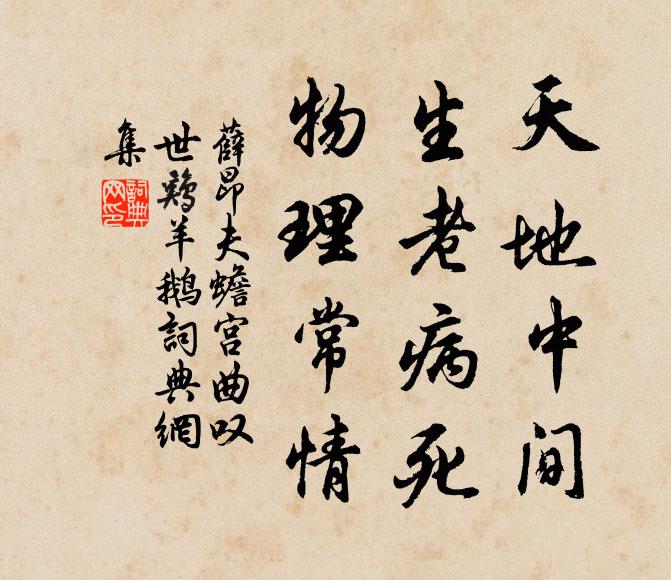 天地中間
生老病死
物理常情
薛昂夫蟾宮曲叹
世鸡羊鵝詞典網
集
詞典
网印